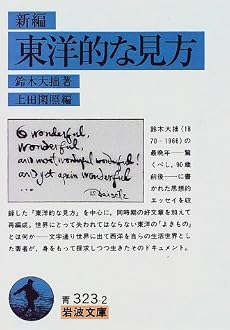 新編
東洋的な見方
鈴木大拙著
上田閑照編
O wonderful,
wonderful,
and most wonderful wonderful!
and yet again wonderful
鈴木大拙(18
70-1966)の
最晩年──驚
くべし,90歳
前後──に書
かれた思想的
エッセイを収
録した「東洋的な見方」を中心に,同時期の好文章を加えて
再編成.世界にとって失われてはならない東洋の「よきもの」
とは何か──文字通り世界に出て西洋を自らの生活世界とし
た著者が,身をもって探求しつつ生きたそのドキュメント.
青 323-2
岩波文庫